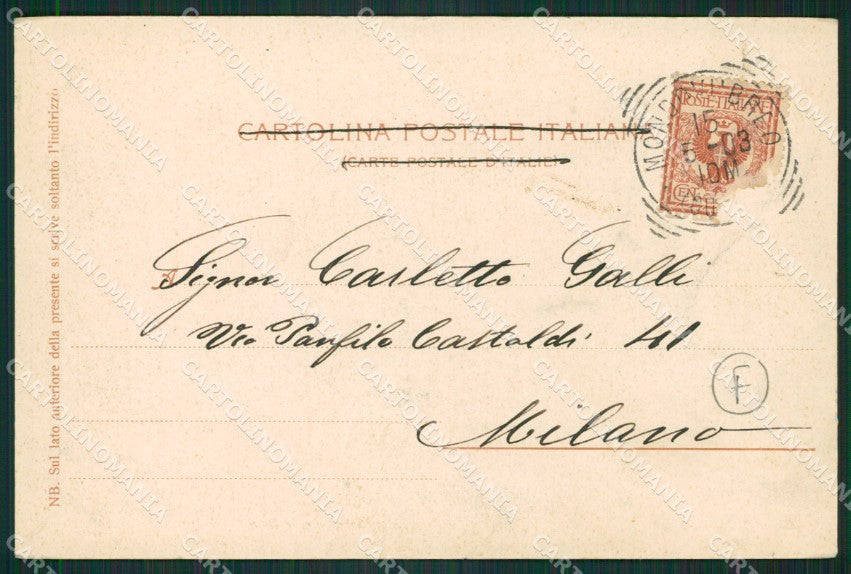 CARTOLINA POSTALE ITALIANA
(CARTE POSTALE D'ITALIE)
POSTE ITALIANE
15
5-03
10M
A Signor Carletto Galli
Via Panfilo Castaldi 41
Milano
F
NB. Sul lato anteriore della presente si scrive soltanto l'indirizzo.
CARTOLINOMANIA